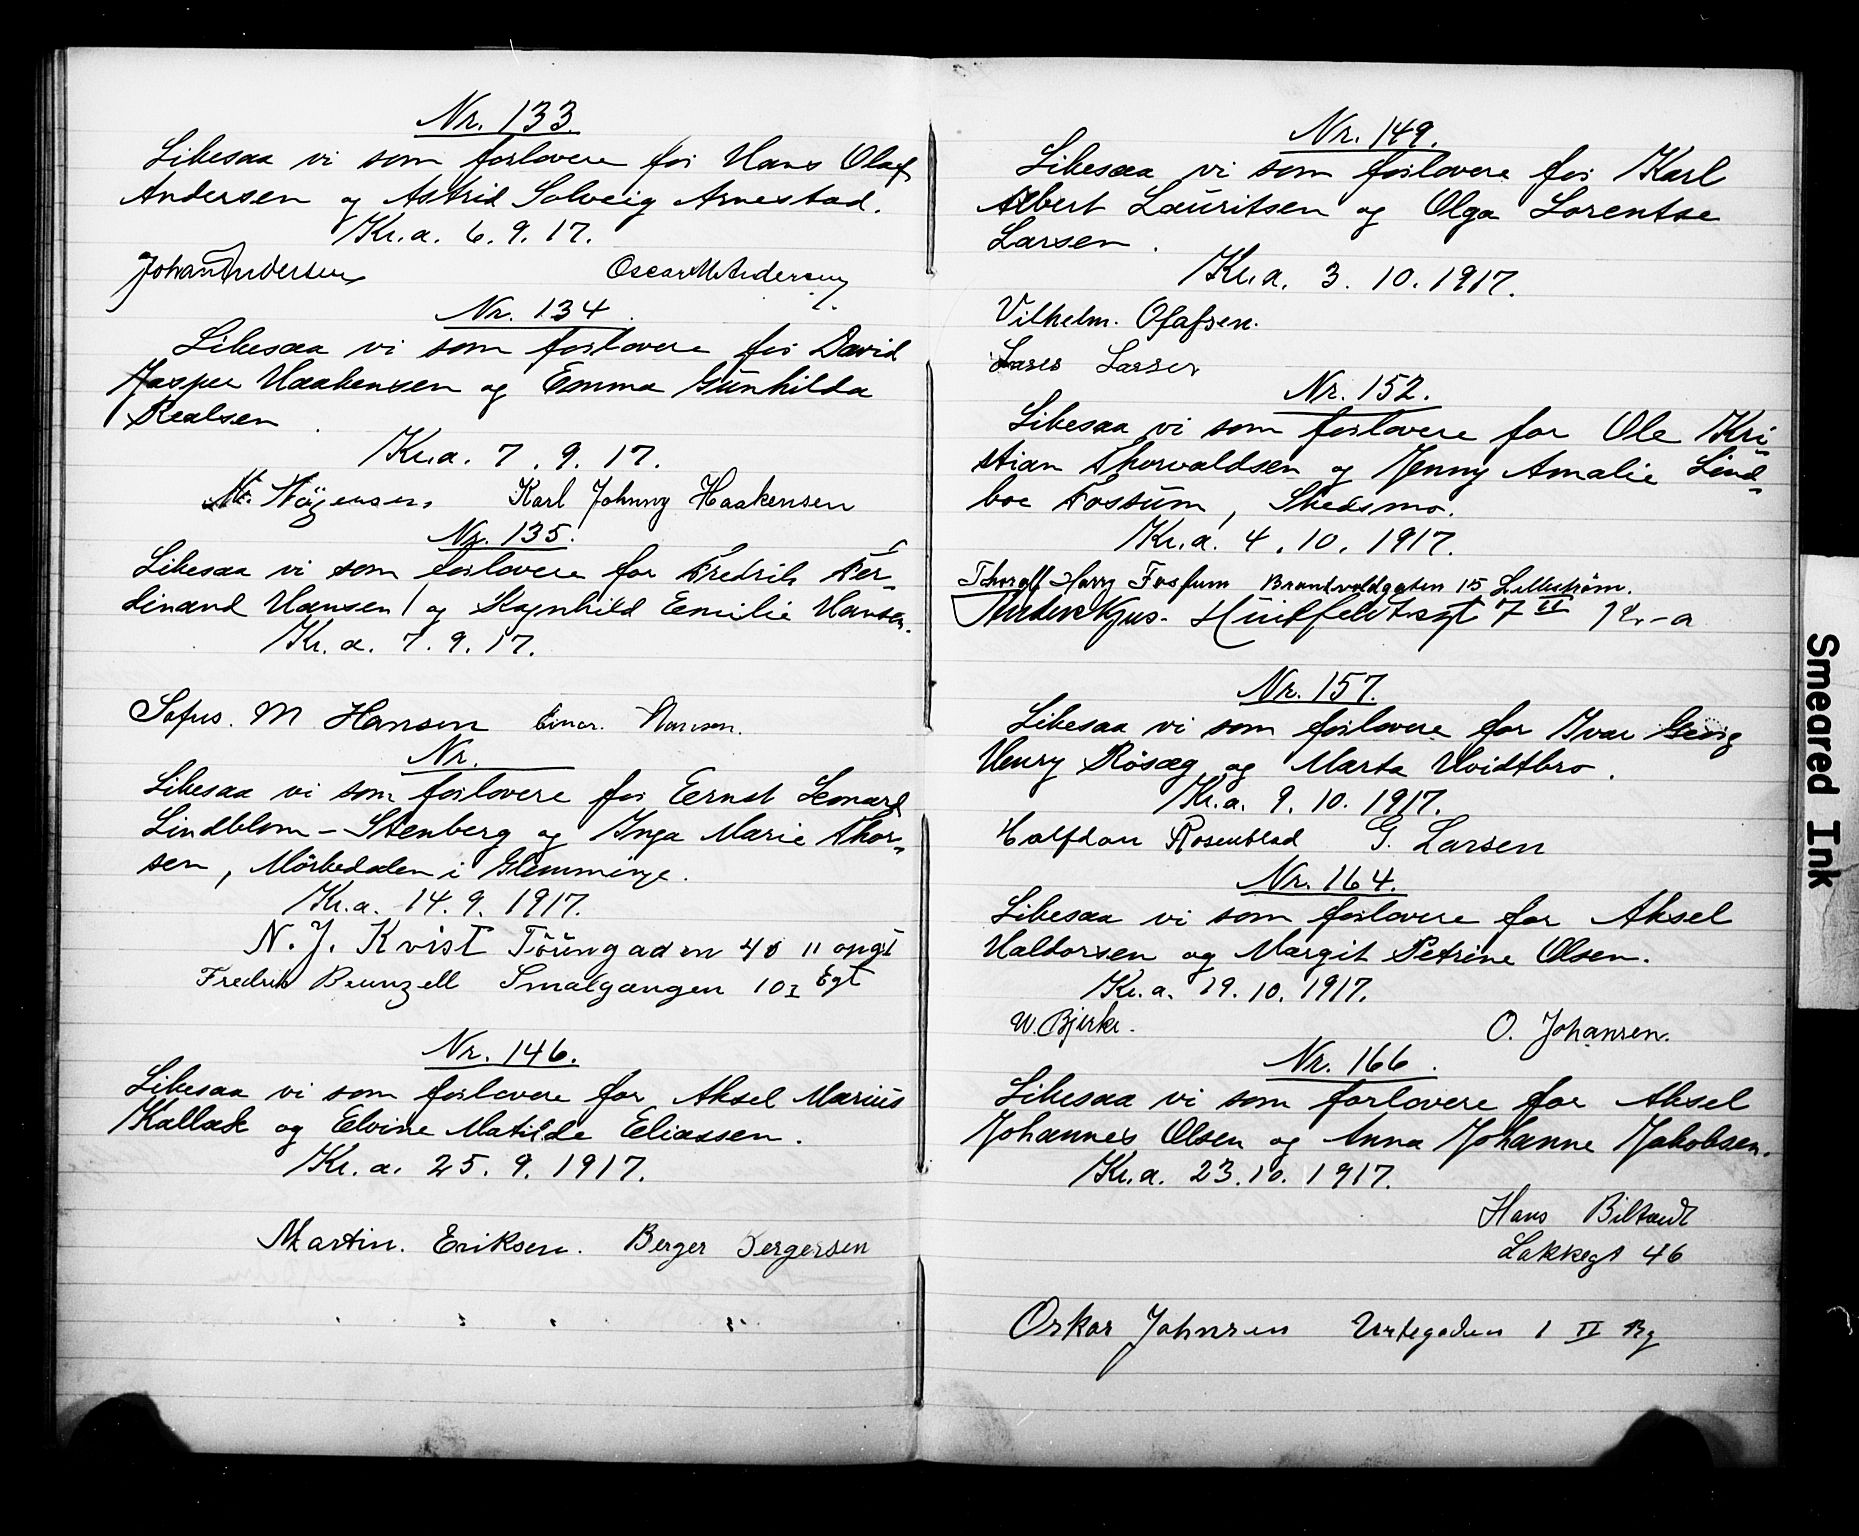 Nr. 133.
Likesaa vi som forlovere for Hans Olaf
Andersen og Astrid Solveig Arnestad.
Kr.a. 6. 9. 17.
Johan Andersen Oscar M Andersen
Nr. 134.
Likesaa vi som forlovere for David
Jasper Haakensen og Emma Gunhilda
Realsen.
Kr.a. 7. 9. 17.
Karl Johnny Haakensen
Nr. 135.
Likesaa vi som forlovere for Fredrik Fer-
dinand Hansen og Ragnhild Emilie Hansen.
Kr. a. 7. 9. 17.
Sofus. M Hansen Einar. Hansen.
Nr.
Likesaa vi som forlovere for Ernst Leonard
Lindblom-Stenberg og Inga Marie Thor-
sen, Mörkedalen i Glemminge.
Kr.a. 14. 9. 1917.
N. J. Kvist Töüngaden 40 II opgt
Fredrik Brunzell Smalgangen 10 I Egt
Nr. 146.
Likesaa vi som forlovere for Aksel Marius
Kallak og Elvine Matilde Eliassen.
Kr. a. 25. 9. 1917.
Martin. Eriksen. Berger Bergersen
Nr. 149.
Likesaa vi som forlovere for Karl
Albert Lauritsen og Olga Lorentse
Larsen.
Kr.a. 3. 10. 1917.
Vilhelm. Olafsen.
Lars Larsen
Nr. 152.
Likesaa vi som forlovere for Ole Kri-
stian Thorvaldsen og Jenny Amalie Lind-
boe Fossum, Skedsmo.
Kr.a. 4. 10. 1917.
Thoralf Harry Fossum Brandvoldgaten 15 Lillestrøm.
Huitfeldtsgt 7 II Kr-a
Nr. 157.
Likesaa vi som forlovere for Ivar Georg
Henry Rösæg og Marta Hvidtbro.
Kr.a. 9. 10. 1917.
Halfdan Rosenblad G. Larsen
Nr. 164.
Likesaa vi som forlovere for Aksel
Haldorsen og Margit Petrine Olsen.
Kr.a. 19. 10. 1917.
W. Bjerke. O. Johansen.
Nr. 166.
Likesaa vi som forlovere for Aksel
Johannes Olsen og Anna Johanne Jakobsen.
Kr.a. 23. 10. 1917.
Hans
Lakkegt 46
Oskar Johnsen Urtegaden 1 II
Smeared Ink